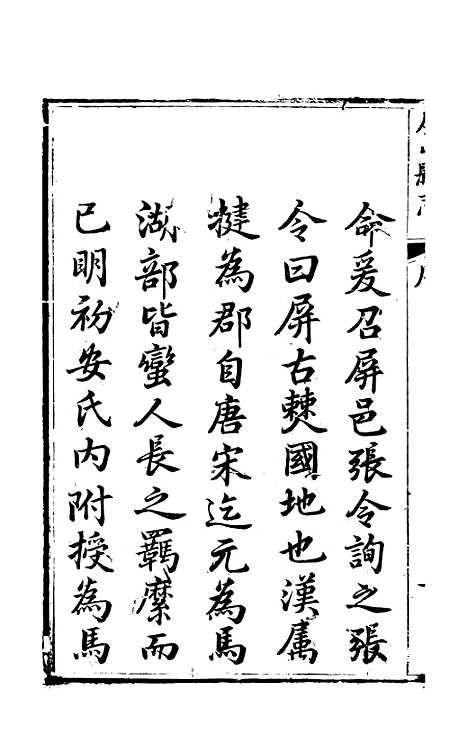 命爰召屏邑張令詢之張
令曰屏古僰國地也漢属
揵為郡自唐宋迄元為馬
湖部皆蠻人長之羈縻而
已明初安氏内附授為馬